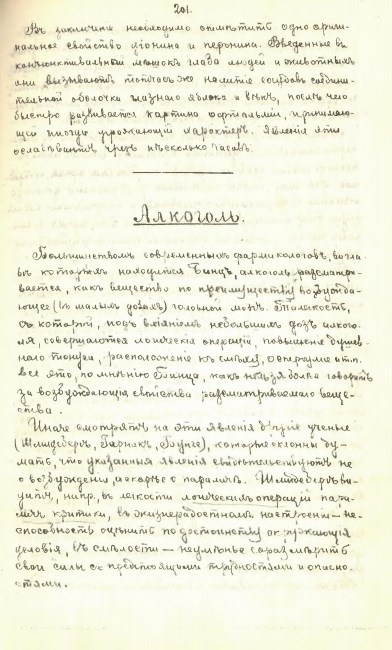 201.
Въ заключение необходимо отмѣтить одно ориги-
нальное свойство діонина и перонина. Введенные въ
конъюнктивальный мѣшокъ глаза людей и животныхъ
они вызываютъ тотчасъ же налитіе сосудовъ соедини-
тельной оболочки глазного яблока и вѣкъ, послѣ чего
быстро развивается картина офтальміи, принимаю-
щей иногда угрожающій характеръ. Явленія эти
сглаживаются чрезъ нѣсколько часовъ.
Алкоголь.
Большинствомъ современныхъ фармакологовъ, во гла-
вѣ которыхъ находится Бинцъ, алкоголь разсматри-
вается, какъ вещество по преимуществу возбуждаю-
щее (въ малыхъ дозахъ) головной мозгъ. Та легкость,
съ которой, подъ вліяніемъ небольшихъ дозъ алкого-
ля, совершаются логическія операціи, повышеніе душев-
наго тонуса, расположеніе къ смѣху, остроуміе и т.п.
все это, по мнѣнію Бинца, какъ нельзя болѣе говоритъ
за возбуждающія свойства разсматриваемаго веще-
ства.
Иначе смотрятъ на эти явленія другіе ученые
(Шмидебергъ, Гарнакъ, Бунге), которые склонны ду-
мать, что указанныя явленія свидѣтельствуютъ не
о возбужденіи, а скорѣе о параличѣ. Шмидебергъ ви-
дитъ, напр. въ легкости логическихъ операцій пара-
личъ критики, въ жизнерадостномъ настроеніи — не-
способность оцѣнить по достоинству окружающія
условія, въ смѣлости — неумѣнье соразмѣрить
свои силы съ предстоящими трудностями и опасно-
стями.